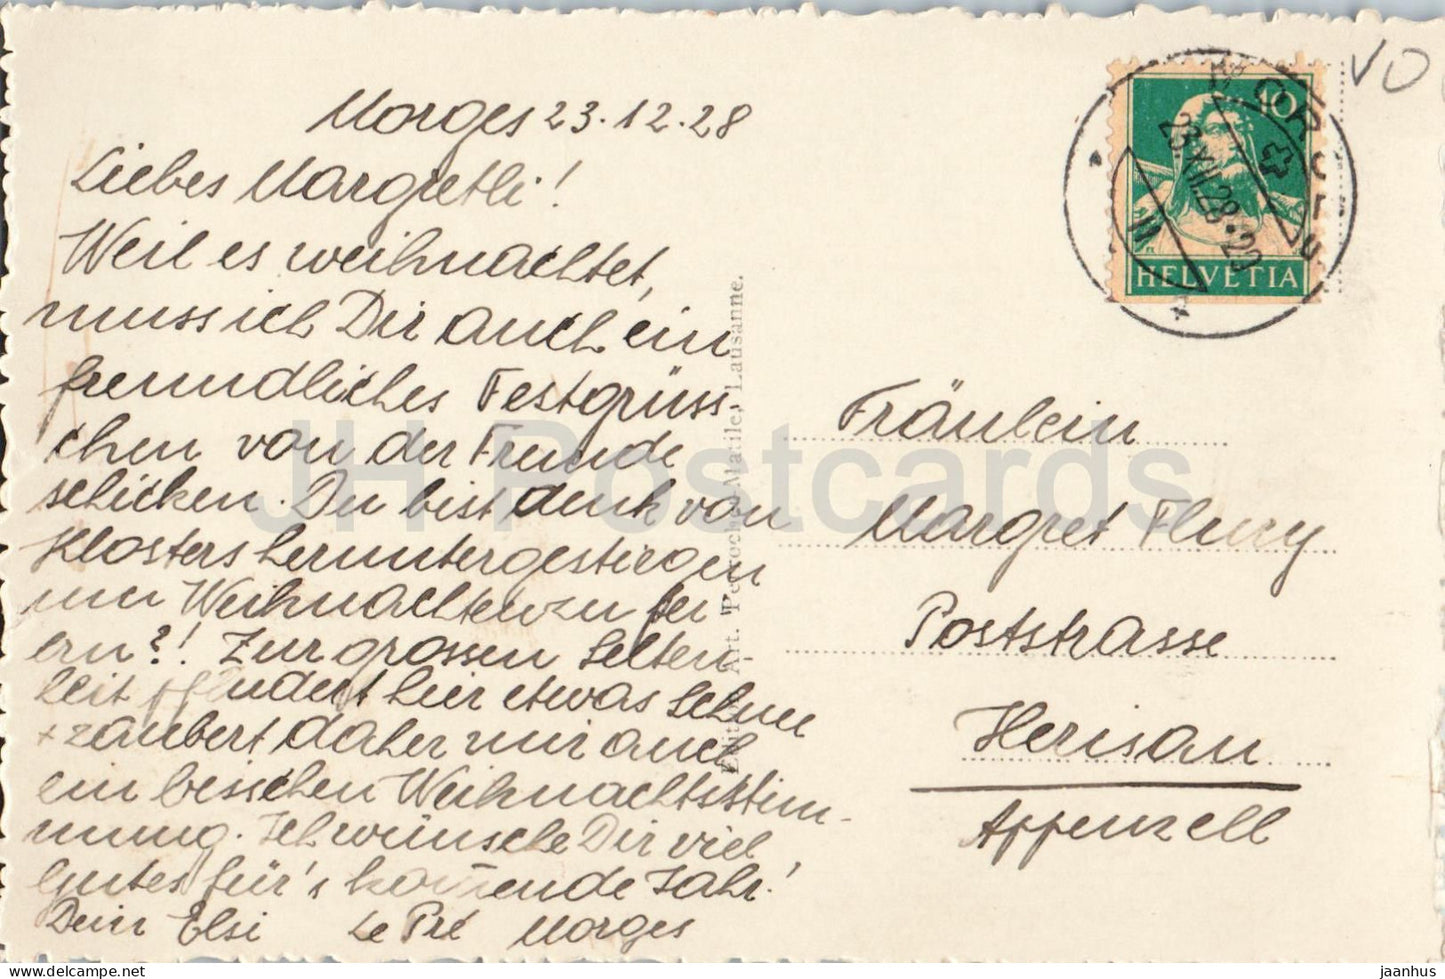 Morges 23.12.28
Liebes Margretli!
Weil es weihnachtet,
muss ich Dir auch ein
freundliches Festgrüss-
chen von der Fremde
schicken. Du bist denk von
Klosters heruntergestiegen
um Weihnachten zu fei
ern?! Zur grossen Selten-
heit pfludert hier etwas Schnee
+ zaubert daher mir auch
ein bisschen Weihnachtsstim-
mung. Ich wünsche Dir viel
Gutes für's kom̄ende Jahr!
Dein Elsi Le Pré Morges
Edition Art. Perrochet-Matile, Lausanne.
VD
10
HELVETIA
MORGES
23.XII.28.20
Fräulein
Margret Flury
Poststrasse
Herisau
Appenzell
JH Postcards
delcampe.net
jaanhus